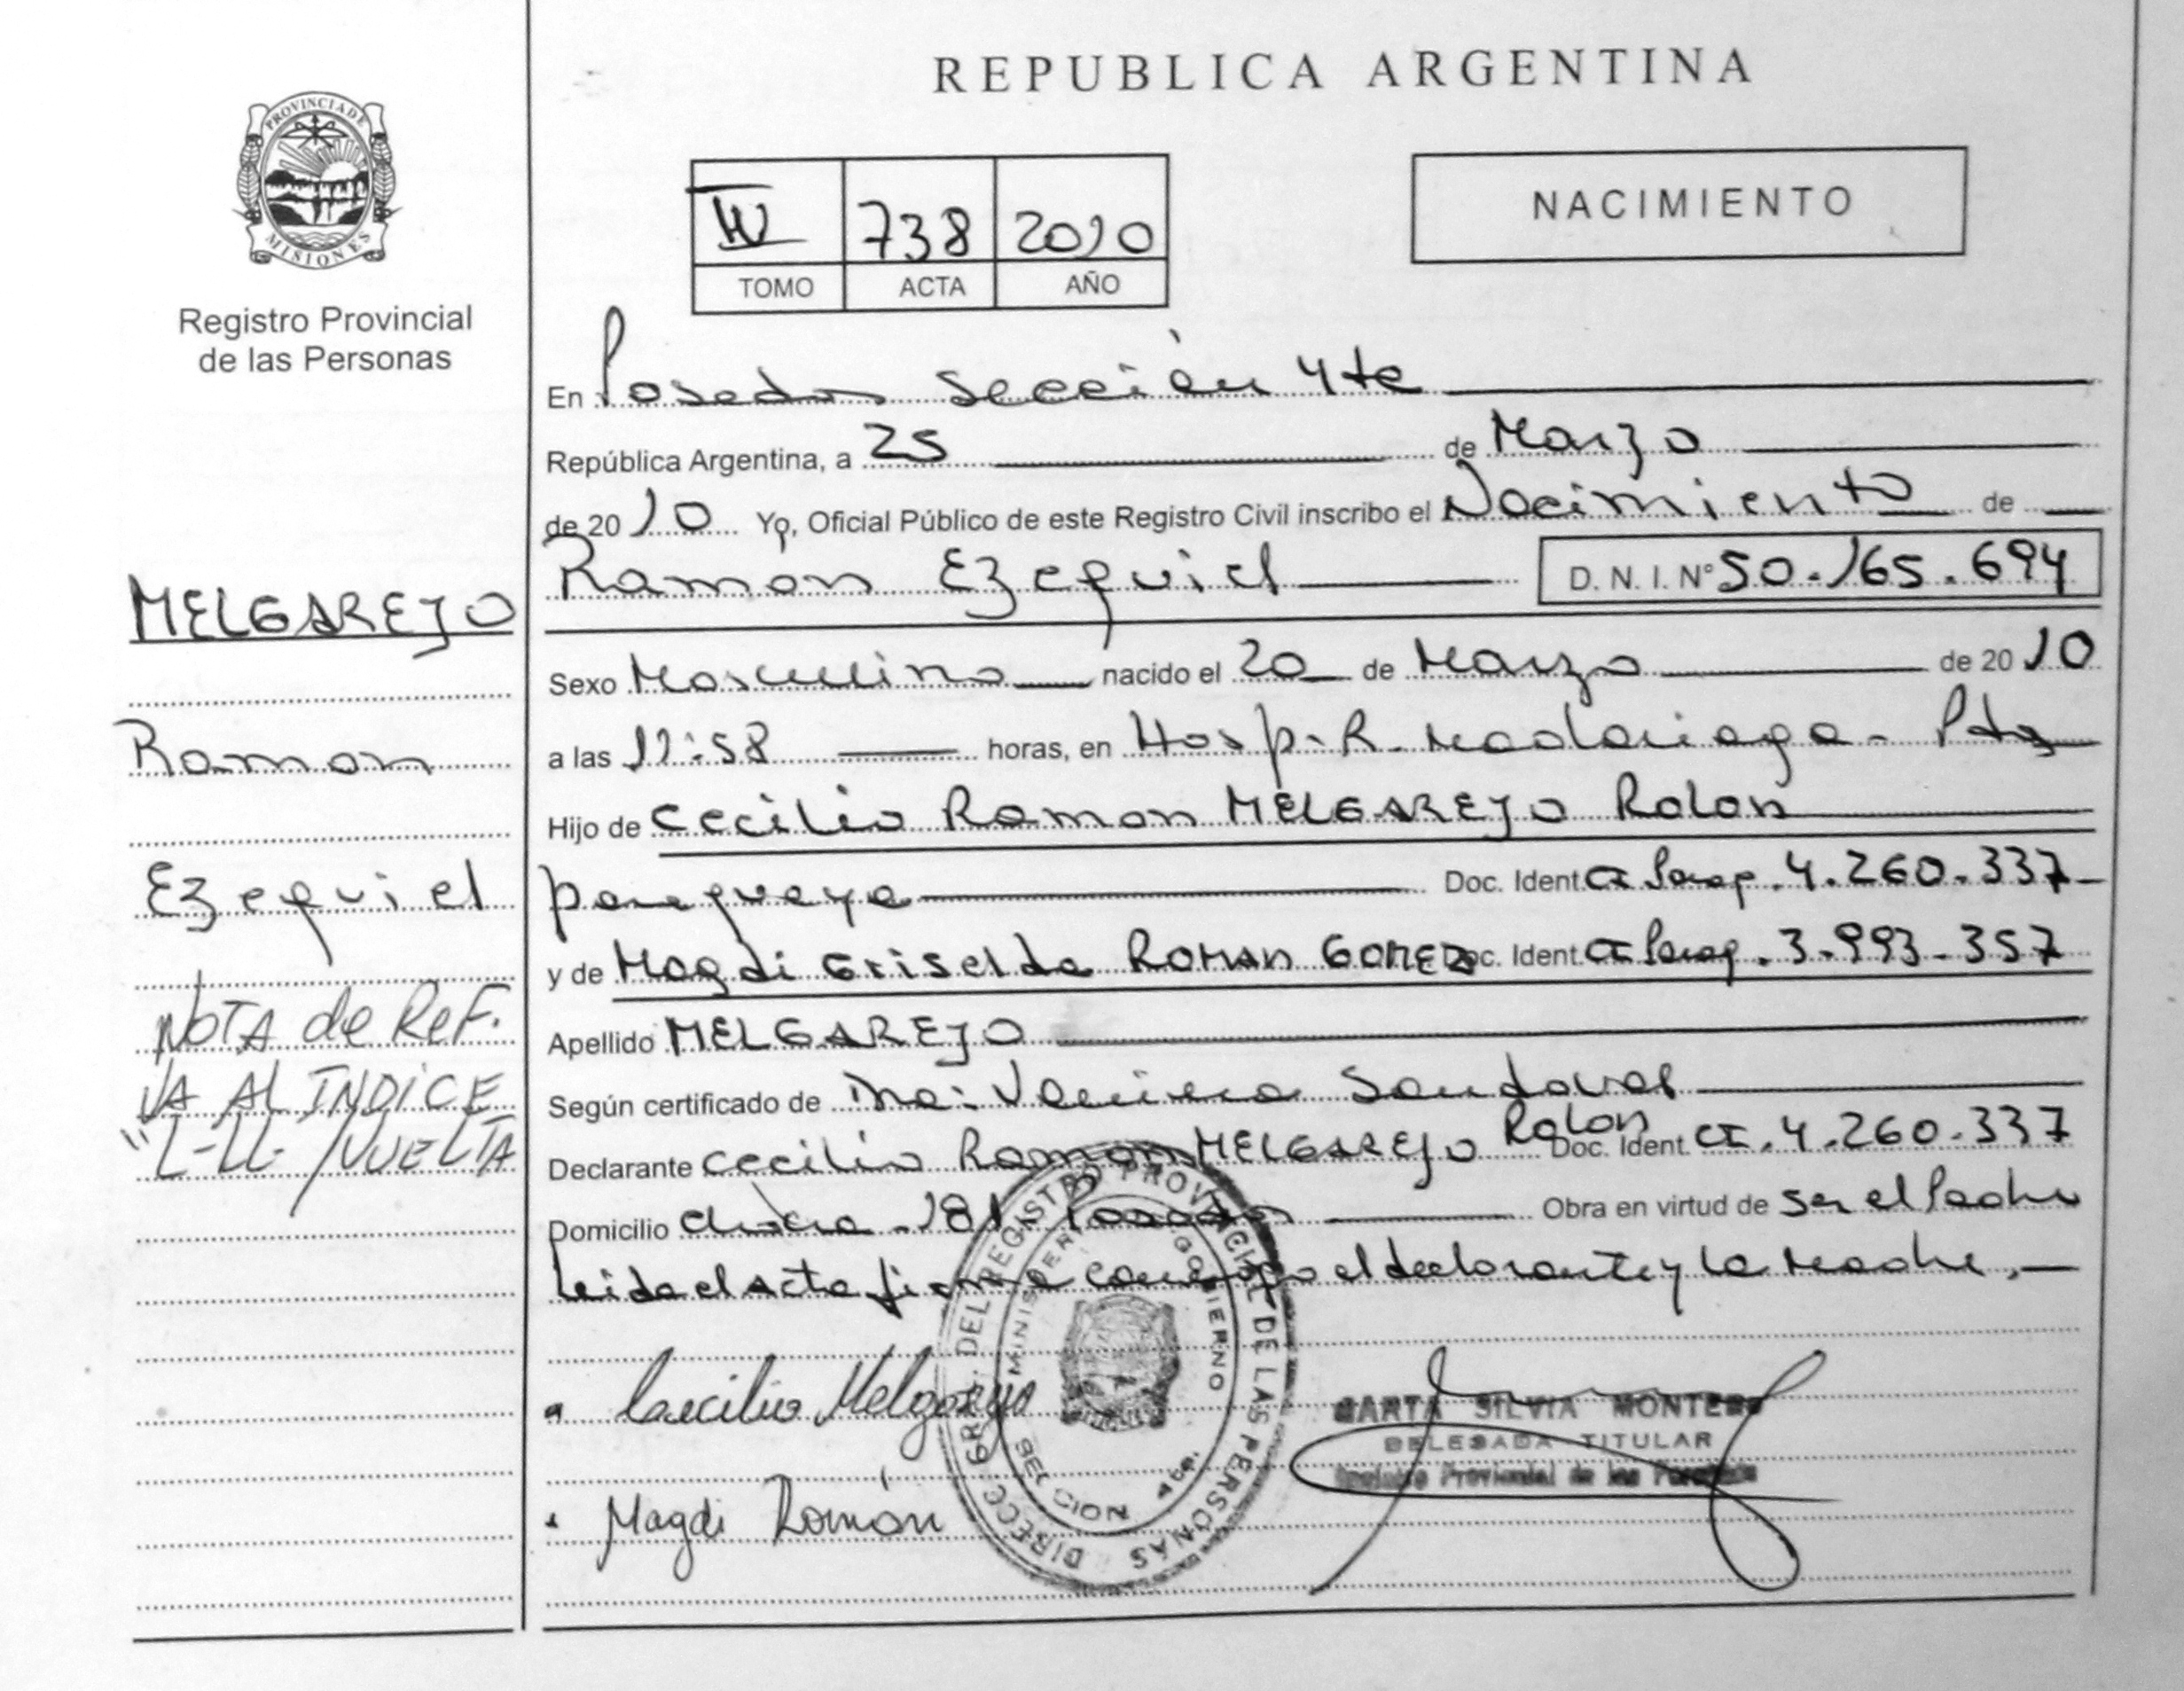 PROVINCIA DE
MISIONES
Registro Provincial
de las Personas
MELGAREJO
Ramon
Ezequiel
NOTA de ReF.
VA AL INDICE
"L-LL- /VUELTA
REPUBLICA ARGENTINA
IV 738 2010
TOMO ACTA AÑO
NACIMIENTO
En Posadas Sección 4ta
República Argentina, a 25 de Marzo
de 2010 Yo, Oficial Público de este Registro Civil inscribo el Nacimiento de
Ramon Ezequiel D. N. I. N° 50.165.694
Sexo Masculino nacido el 20 de Marzo de 2010
a las 11:58 horas, en Hosp. R. Madariaga - Pdas
Hijo de Cecilio Ramon MELGAREJO Rolon
paraguaya Doc. Ident. CI Parag. 4.260.337
y de Magdi Griselda ROMAN GOMEZ Doc. Ident. CI Parag. 3.993.357
Apellido MELGAREJO
Según certificado de Sandoval
Declarante Cecilio Ramon MELGAREJO Rolon Doc. Ident. CI. 4.260.337
Domicilio 181 - Posadas Obra en virtud de ser el Padre
leida el acta firma conmigo el declarante y la madre.
Cecilio Melgarejo
Magdi Román
DIRECC. GRAL. DEL REGISTRO PROVINCIAL DE LAS PERSONAS
MINISTERIO GOBIERNO
MARTA SILVIA MONTERO
DELEGADA TITULAR
Registro Provincial de las Personas